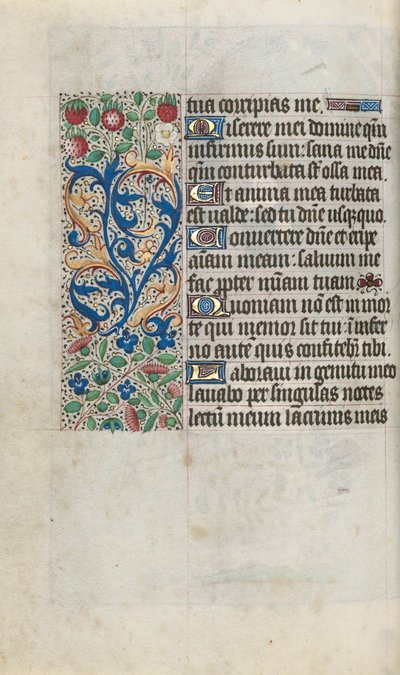 tua corripias me.
Miserere mei domine qm̄
infirmus sum: sana me dn̄e
qm̄ conturbata st̄ ossa mea.
Et anima mea turbata
est ualde: sed tu dn̄e usq̄quo.
Conuertere dn̄e et eripe
aīam meam: saluum me
fac ꝓpter mīam tuam.
Quoniam nō est in mor
te qui memor sit tui: ī infer
no autē quis confitebr̄ tibi.
Laboraui in gemitu meo
lauabo per singulas noctes
lectū meum lacrimis meis